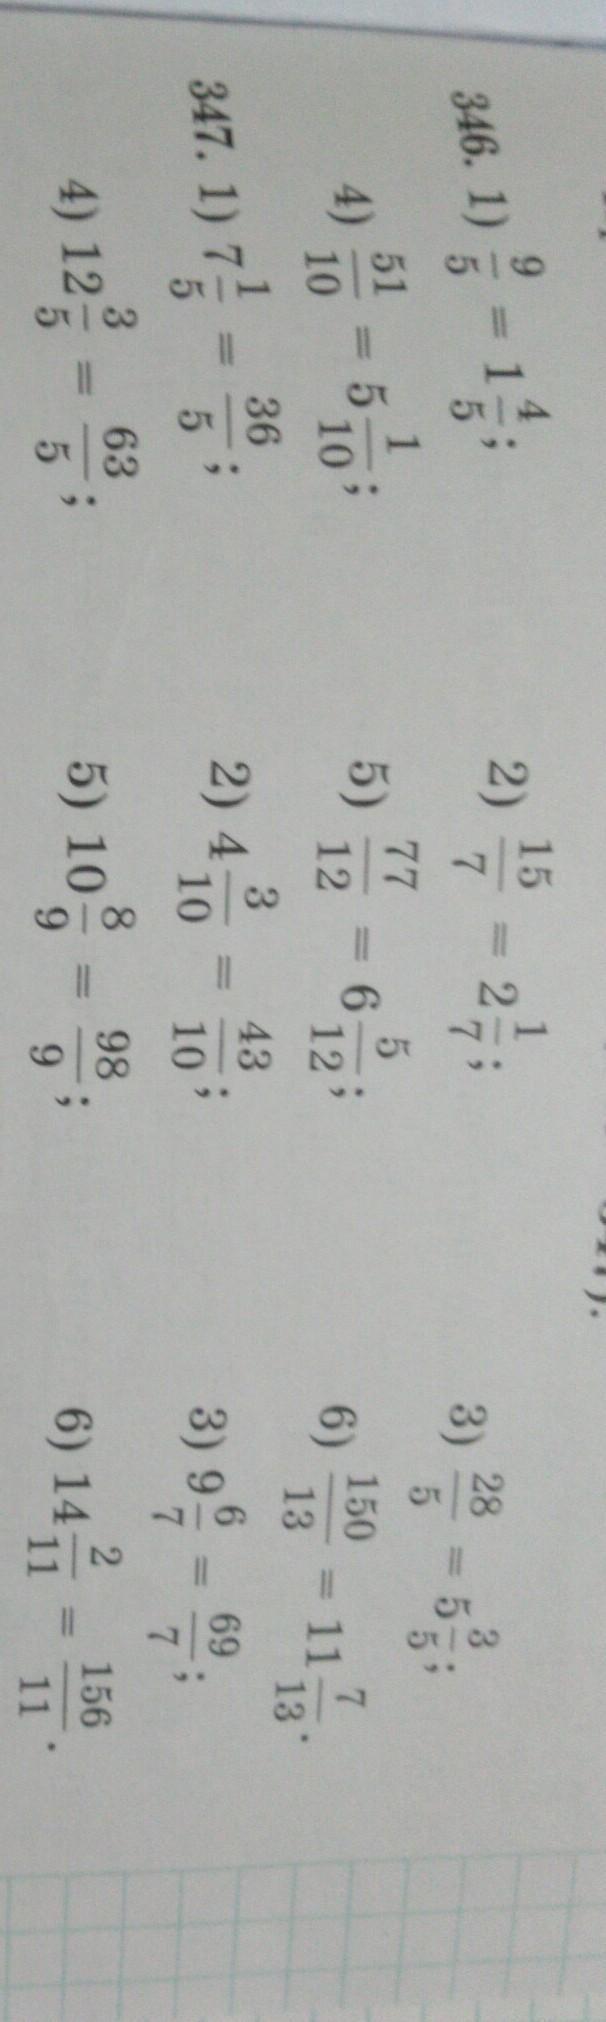 346. 1) 9/5 = 1 4/5; 2) 15/7 = 2 1/7; 3) 28/5 = 5 3/5;
4) 51/10 = 5 1/10; 5) 77/12 = 6 5/12; 6) 150/13 = 11 7/13.
347. 1) 7 1/5 = 36/5; 2) 4 3/10 = 43/10; 3) 9 6/7 = 69/7;
4) 12 3/5 = 63/5; 5) 10 8/9 = 98/9; 6) 14 2/11 = 156/11.